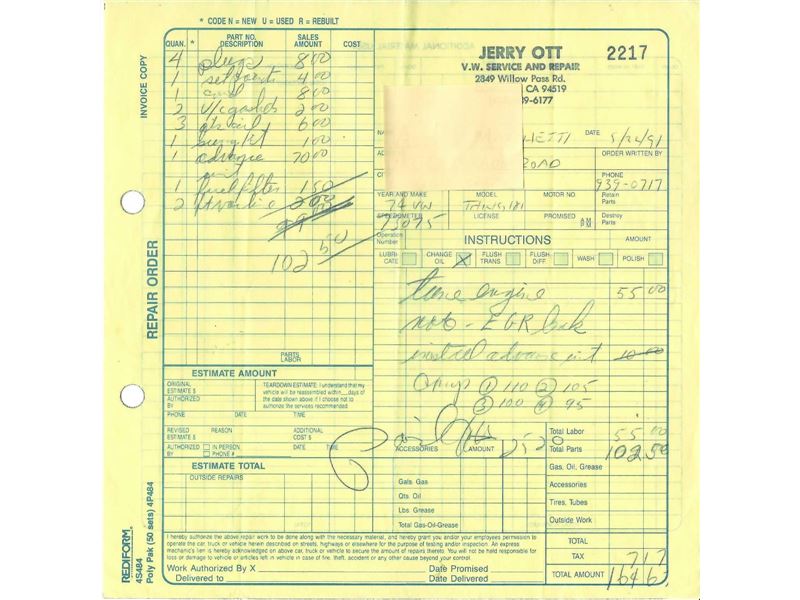 * CODE N = NEW U = USED R = REBUILT
INVOICE COPY
REPAIR ORDER
REDIFORM®
4S484
Poly Pak (50 sets) 4P484
QUAN. * PART NO. DESCRIPTION SALES AMOUNT COST
4 plugs 8 00
1 set points 4 00
1 8 00
2 v/c gaskets 2 00
3 qts oil 6 00
1 1 00
1 advance 70 00
unit
1 fuel filter 1 50
2 2 00
102 50
PARTS
LABOR
JERRY OTT
V.W. SERVICE AND REPAIR
2849 Willow Pass Rd.
CA 94519
9-6177
2217
NA HETTI DATE 5/24/91
AD ROAD ORDER WRITTEN BY
CI PHONE 939-0717
YEAR AND MAKE MODEL MOTOR NO. Retain Parts
74 VW THING 181
SPEEDOMETER LICENSE PROMISED AM PM Destroy Parts
75075
Operation Number INSTRUCTIONS AMOUNT
LUBRICATE CHANGE OIL X FLUSH TRANS FLUSH DIFF WASH POLISH
tune engine 55 00
note - EGR leak
install advance unit 10 00
Comp ① 110 ② 105
③ 100 ④ 95
Paid
ACCESSORIES AMOUNT
Total Labor 55 00
Total Parts 102 50
Gas, Oil, Grease
Accessories
Tires, Tubes
Outside Work
TOTAL
TAX 7 17
TOTAL AMOUNT 164 67
Gals. Gas
Qts. Oil
Lbs. Grease
Total Gas-Oil-Grease
ESTIMATE AMOUNT
ORIGINAL ESTIMATE $
AUTHORIZED BY
TEARDOWN ESTIMATE: I understand that my
vehicle will be reassembled within days of
the date shown above if I choose not to
authorize the services recommended
PHONE DATE TIME
REVISED ESTIMATE $ REASON ADDITIONAL COST $
AUTHORIZED BY IN PERSON PHONE # DATE TIME
ESTIMATE TOTAL
OUTSIDE REPAIRS
I hereby authorize the above repair work to be done along with the necessary material, and hereby grant you and/or your employees permission to
operate the car, truck or vehicle herein described on streets, highways or elsewhere for the purpose of testing and/or inspection. An express
mechanic's lien is hereby acknowledged on above car, truck or vehicle to secure the amount of repairs thereto. You will not be held responsible for
loss or damage to vehicle or articles left in vehicle in case of fire, theft, accident or any other cause beyond your control.
Work Authorized By X Date Promised
Delivered to Date Delivered